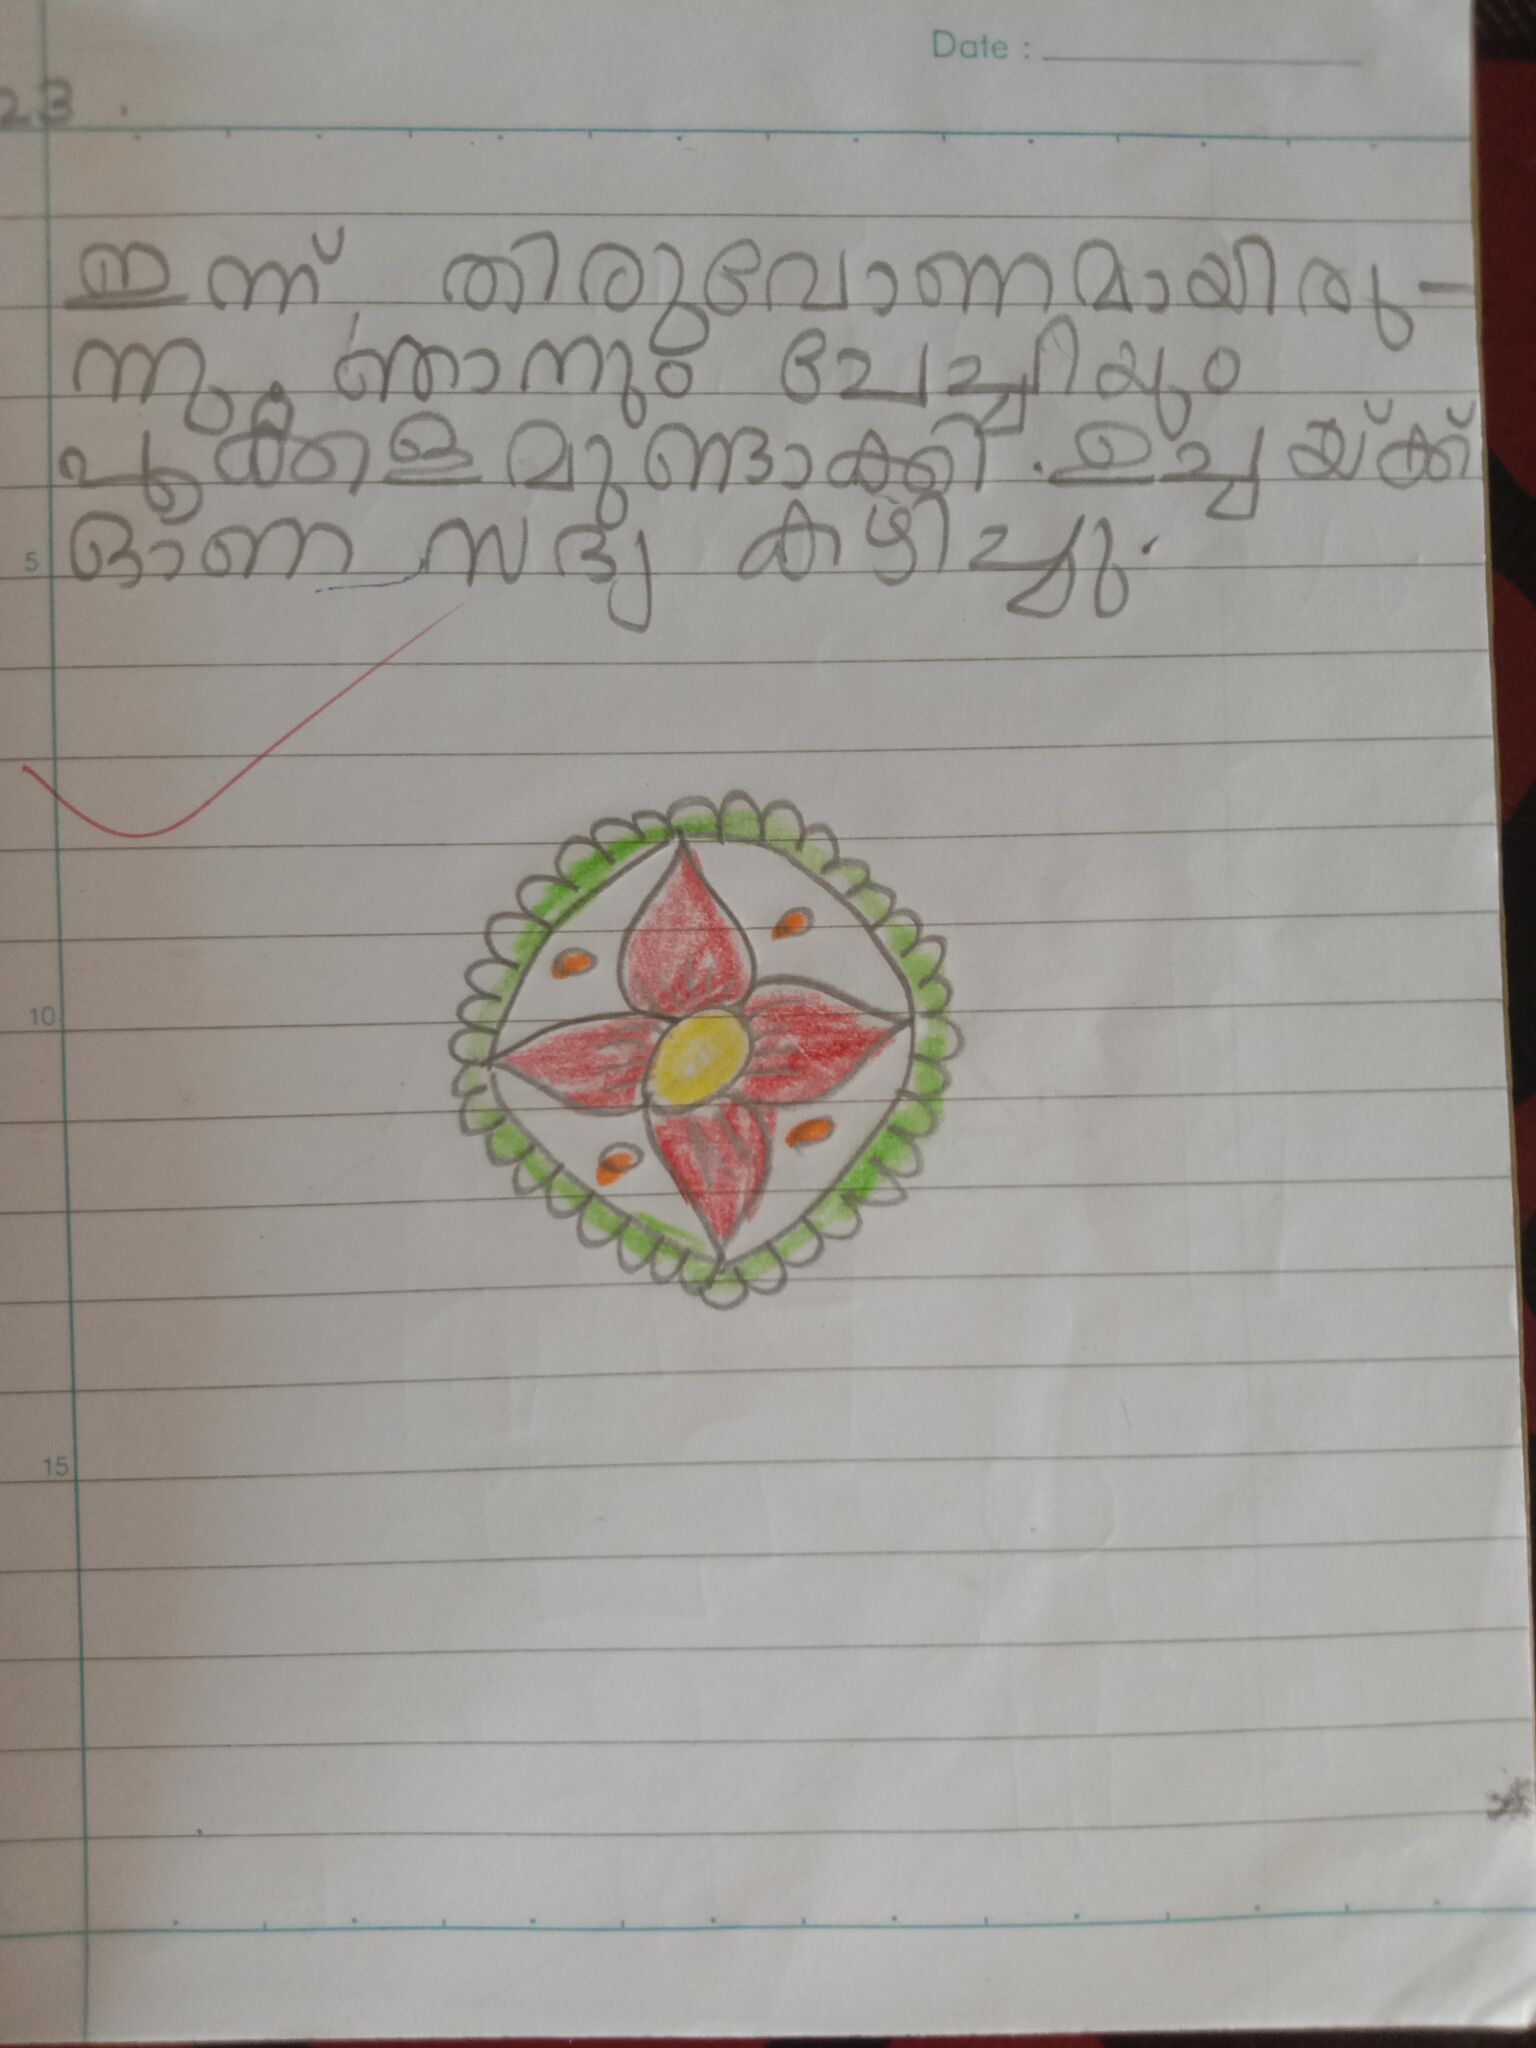 Date :
23
ഇന്ന് തിരുവോണമായിരു-
ന്നു. ഞാനും ചേച്ചിയും
പൂക്കളമുണ്ടാക്കി. ഉച്ചയ്ക്ക്
ഓണ സദ്യ കഴിച്ചു.
5
10
15